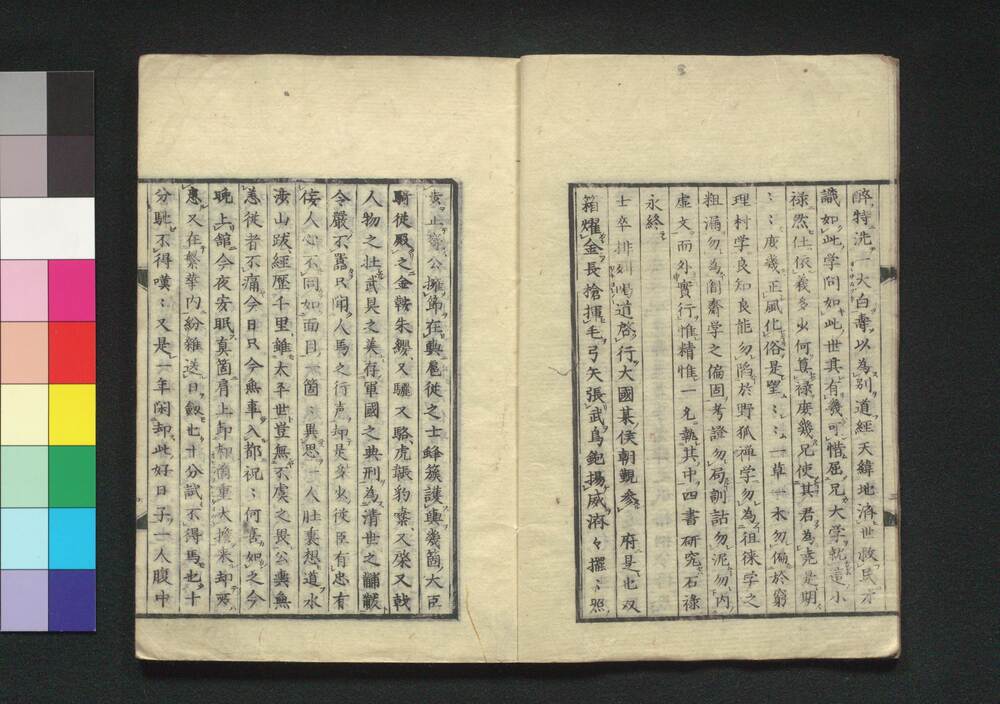 酔特洗一大白壽以為別道經天緯地濟世救民才
識如此学問如此世其有幾可惜屈兄大学就這小
禄然仕依義多少何算禄庶幾兄使其君為堯是期
〻〻庶幾正風化俗是望〻〻一草一木勿偏於窮
理村学良知良能勿陷於野狐禅学勿為徂徠学之
粗漏勿為闇齋学之偏固考證勿局訓詁勿泥勿内
虚文而外實行惟精惟一允執其中四書研究石禄
永終
士卒排列喝道啓行大國某侯朝覲参府是也双
箱燿金長搶揮毛弓矢張武鳥銃揚威濟々擺〻照
公擁節在輿扈従之士蜂簇護輿幾箇大臣
騎徒殿之金鞍朱纓又驪又駱虎韔豹嚢又棨又戟
人物之壮武具之美存軍國之典刑為清世之黼黻
令嚴不囂只聞人馬之行声却是多少従臣有忠有
佞人心不同如面目一箇〻異思一人肚裏想道水
渉山跋經歷千里雖太平世豈無不虞之畏公輿無
恙従者不痡今日只今無事入都祝〻何喜如之今
晩上舘今夜安眠真箇肩上却重大擔来却
又在繁華内紛雜送日也十分試不得馬也十
分馳不得嘆〻又是一年閑却此好日子一人腹中